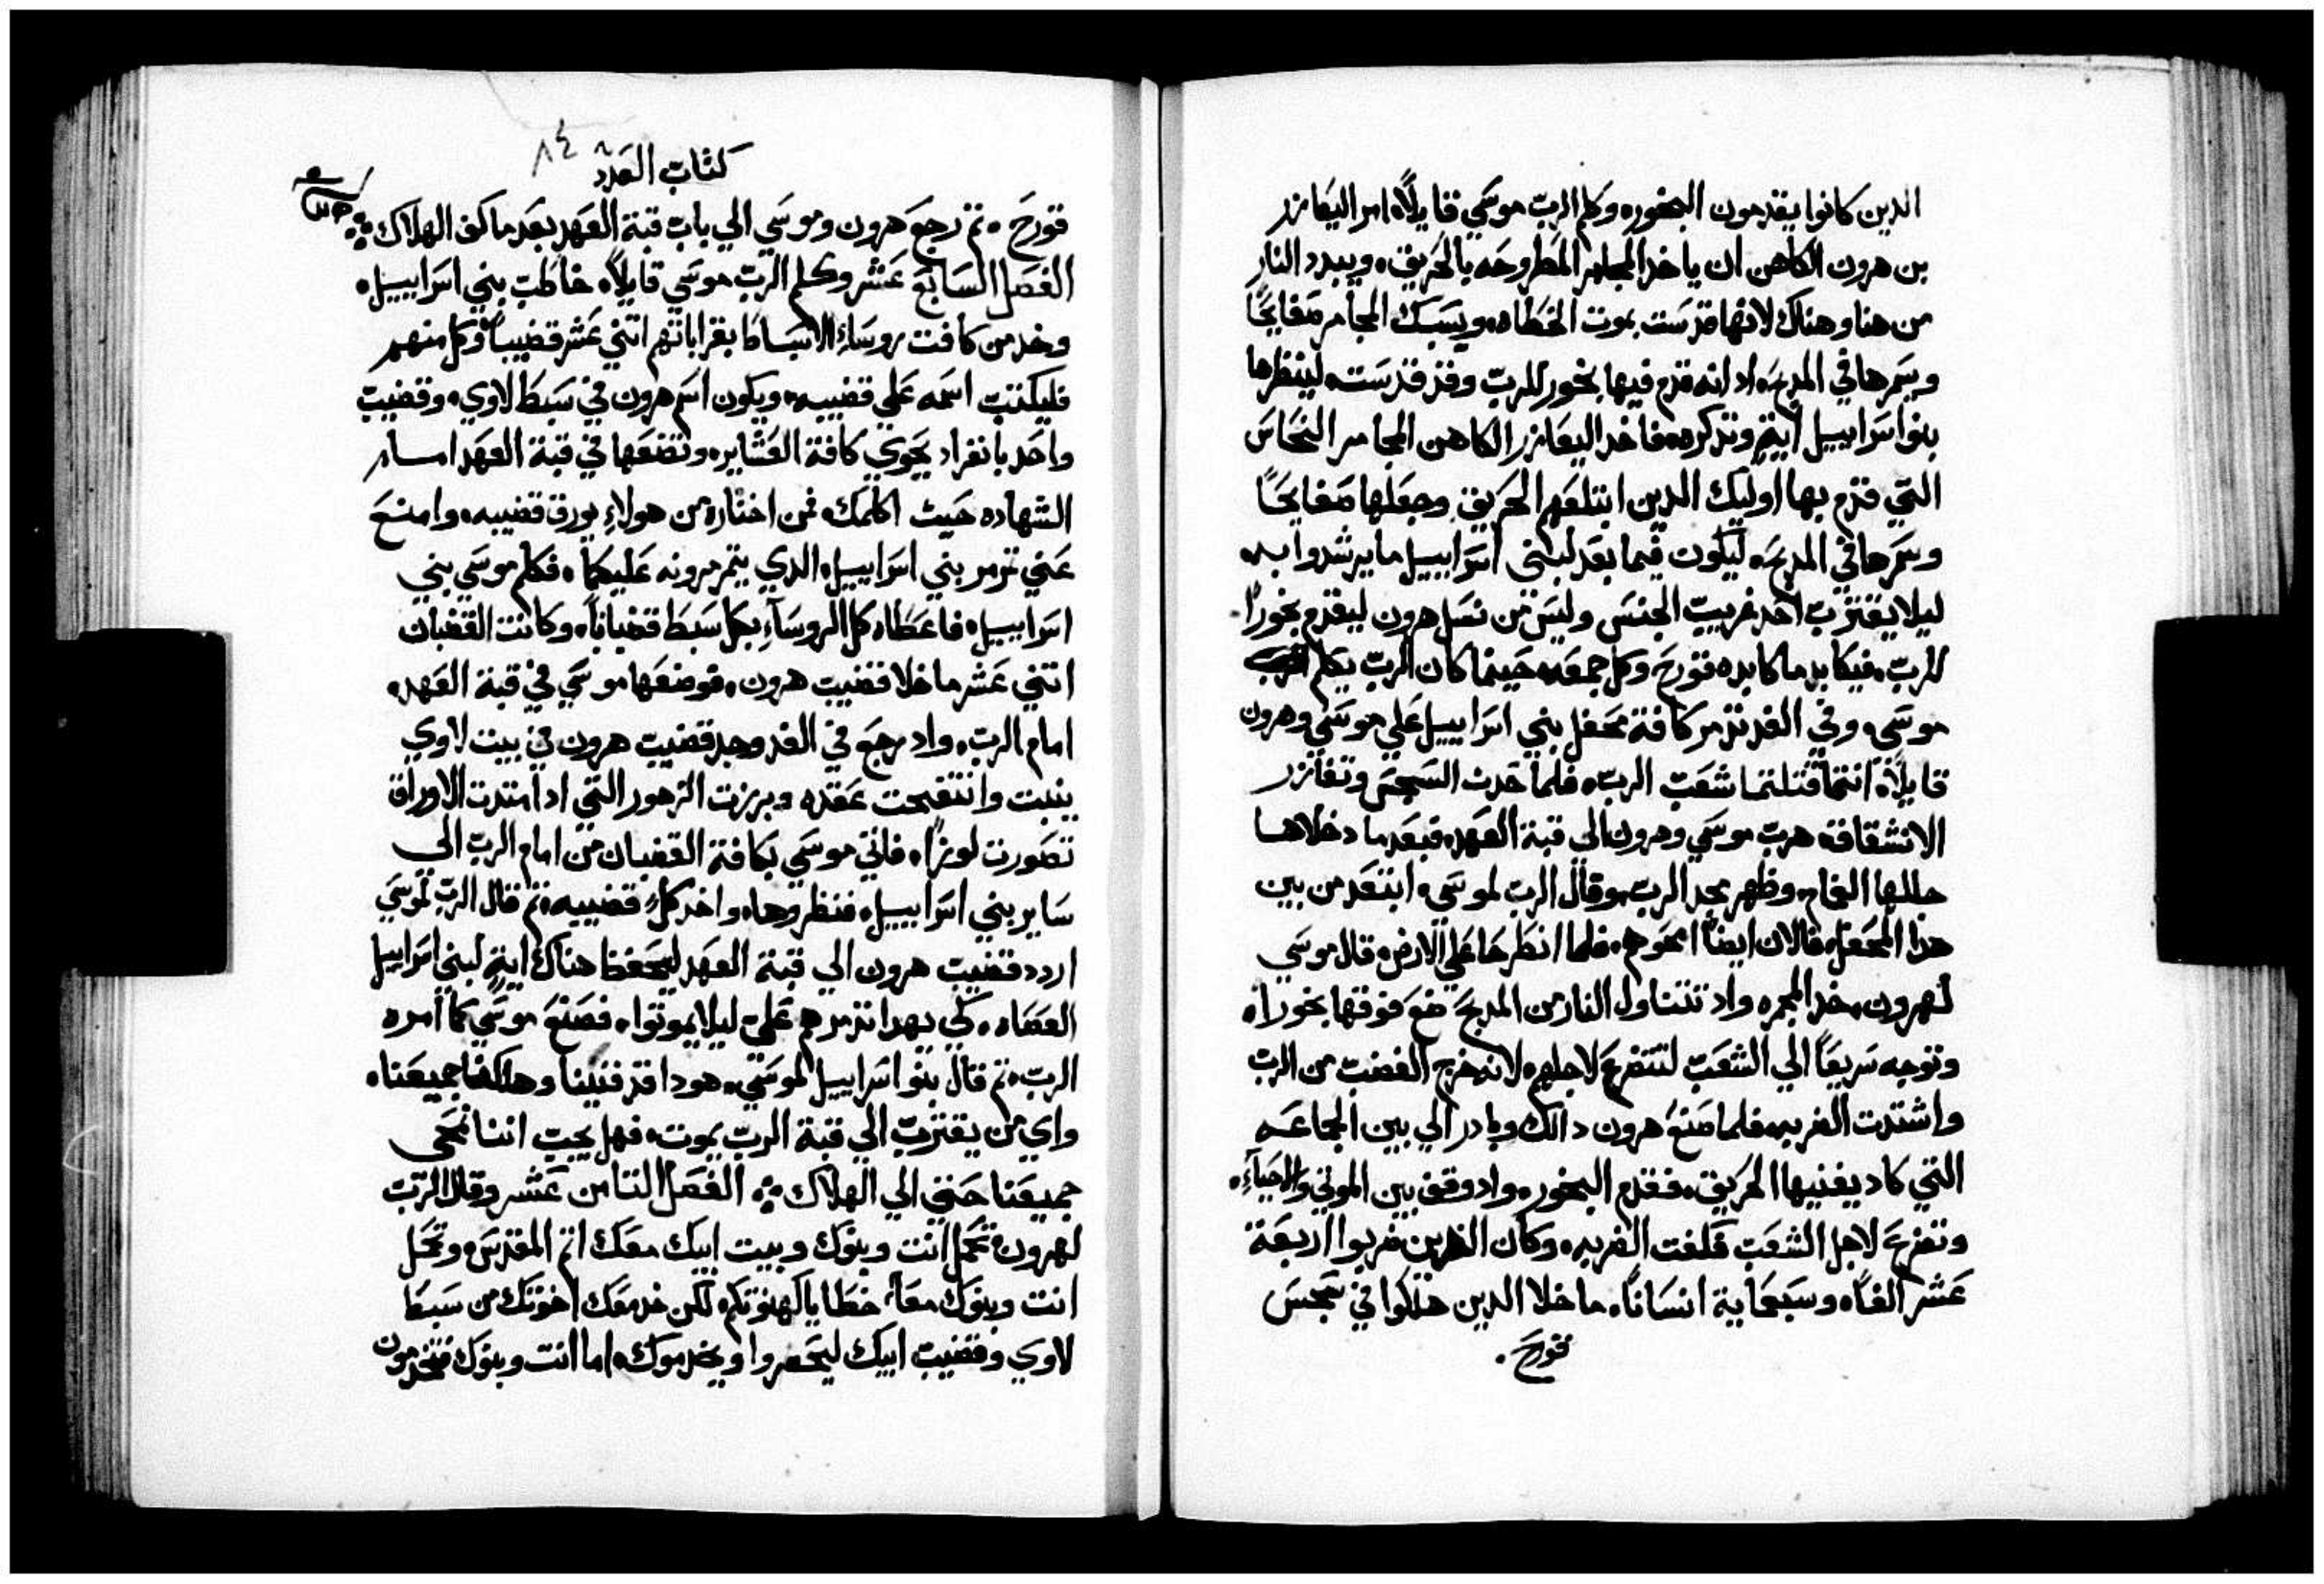 الدين كانوا يقدمون البخور، وكلم الرب موسَي قايلاً، امر اليعازر
بن هرون الكاهن ان ياخد المجامر المطروحه بالحَريق، ويبدد النار
من هنا وهناك لانها قدسَت بموت الخطاه، ويسَبك المجامر صَفايحًا
وسَمرها في المدبحَ، اد انه قدم فيها بخور للرب وقد قدسَت، لينظرها
بنو اسَراييل اية وتدكره، فاخد اليعازر الكاهن المجامر النحَاسَ
التي قدم بها اوليك الدين ابتلعَهم الحَريق وجعَلها صَفايحًا
وسَمرها في المدبحَ، ليكون فيما بعَد لبني اسَراييل ما يرشدوا به،
ليلا يقترب احَد غريب الجنسَ وليسَ من نسَل هرون ليقدم بخورًا
للرب، فيكابد ما كابده قورحَ وكل جمعَه، حَينما كان الرب يكلم
موسَي، وفي الغد تدمر كافة محَفل بني اسَراييل عَلي موسَي وهرون
قايلاً، انتما قتلتما شعَب الرب، فلما حَدث السَجسَ وتفازر
الانشقاقه هرب موسَي وهرون الي قبة العَهد، فبعَد ما دخلاها
جللها الغمام، وظهر مجد الرب، وقال الرب لموسَي، ابتعَد من بين
هدا المحَفل، فالان ايضاً امحَوهم، فلما انطرحَا عَلي الارض، قال موسَي
لهرون، خد المجمره، واد تتناول النار من المدبحَ ضعَ فوقها بخورا،
وتوجه سَريعَاً الي الشعَب لتتضرعَ لاجلهم، لانه خرج الغضب من الرب
واشتدت الضربه، فلما صَنعَ هرون دالك وبادر الي بين الجماعَه
التي كاد يفنيها الحَريق، فقدم البخور، واد وقف بين الموتي والاحَياء،
وتضرعَ لاجل الشعَب فكفت الضربه، وكان الدين ضربوا اربعَة
عَشر الفاً، وسَبعَماية انسَاناً، ما خلا الدين هلكوا في سَجسَ
قورحَ.
كتاب العَدد
٨٤
قورحَ، تم رجعَ هرون وموسَي الي باب قبة العَهد بعَد ما كف الهلاك
الفصَل السَابعَ عَشر وكلم الرب موسَي قايلاً، خاطب بني اسَراييل،
وخد من كافت روسَاء الاسَباط بقراباتهم اتني عَشر قضيباً وكل منهم
فليكتب اسَمه عَلي قضيبه، ويكون اسَم هرون في سَبط لاوي، وقضيب
واحَد بانفراد يحَوي كافة العَشاير، وتضعَها في قبة العَهد امام
الشهاده حَيث اكلمك، فمن اختاره من هولاء يورق قضيبه، وامنعَ
عَني تدمر بني اسَراييل، الدي يتمرمرونه عَليكما، فكلم موسَي بني
اسَراييل، فاعَطاه كل الروسَاء بكل سَبط قضباناً، وكانت القضبان
اتني عَشر ما خلا قضيب هرون، فوضعَها موسَي في قبة العَهد،
امام الرب، واد رجعَ في الغد وجد قضيب هرون في بيت لاوي
ينبت وانتفحت عَقده وبرزت الزهور التي اد امتدت الاوراق
تصَورت لوزاً، فاتي موسَي بكافة القضبان من امام الرب الي
سَاير بني اسَراييل، فنظروها، واخد كل قضيبه، تم قال الرب لموسَي
اردد قضيب هرون الي قبة العَهد ليحَفظ هناك اية لبني اسَراييل
العَصَاه، لكي يهدا تدمرهم عَلي ليلا يموتوا، فصَنعَ موسَي كما امره
الرب، تم قال بنو اسَراييل لموسَي، هودا قد فنينا وهلكنا جميعَنا،
واي من يقترب الي قبة الرب يموت، فهل يجب اننا نمحَي
جميعَنا حَتي الي الهلاك الفصَل التامن عَشر وقال الرب
لهرون، تحَمل انت وبنوك وبيت ابيك معَك اتم المقدسَ، وتحَمل
انت وبنوك معَاً، خطايا كهنوتكم، لكن خد معَك اخوتك من سَبط
لاوي وقضيب ابيك ليحَضروا ويخدموك، اما انت وبنوك فتخدمون